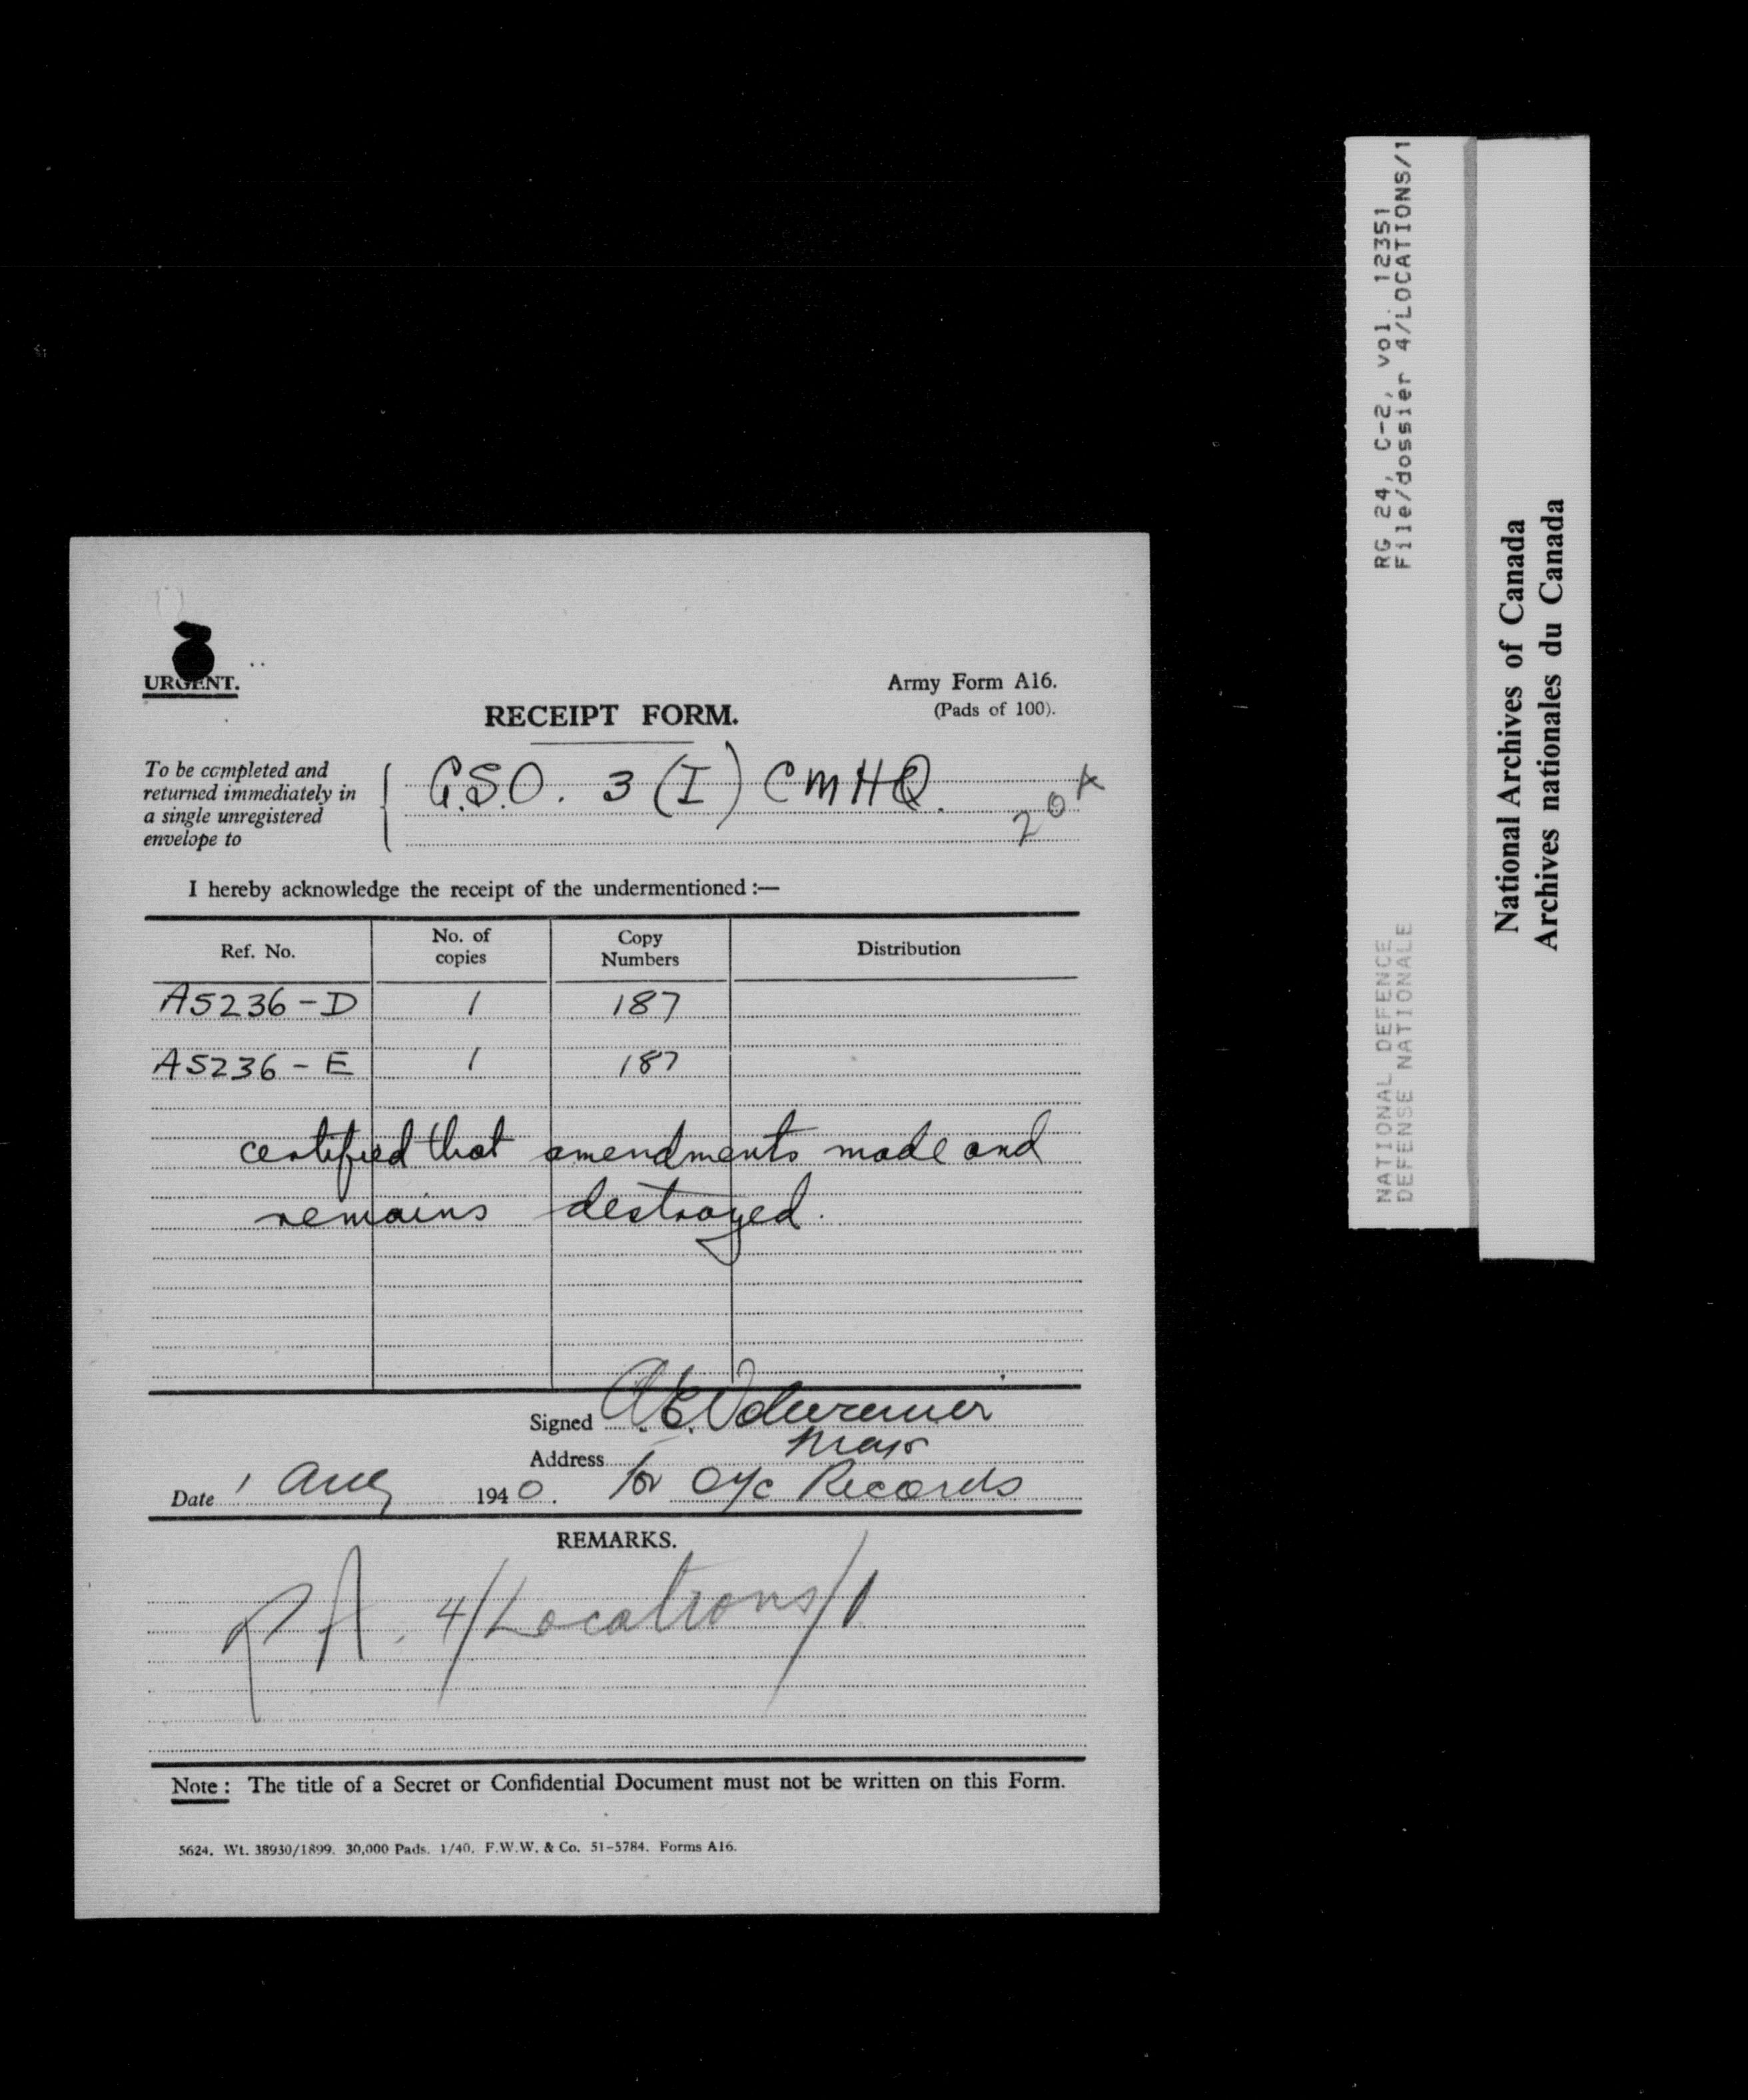 URGENT.
Army Form A16.
(Pads of 100).
RECEIPT FORM.
To be completed and
returned immediately in
a single unregistered
envelope to
G.S.O. 3 (I) CMHQ.
20A
I hereby acknowledge the receipt of the undermentioned :—
Ref. No. No. of copies Copy Numbers Distribution
A5236-D 1 187
A5236-E 1 187
certified that amendments made and
remains destroyed.
Signed
Address Major
Date 1 Aug 1940. for O i/c Records
REMARKS.
PA. 4/Locations/1
Note : The title of a Secret or Confidential Document must not be written on this Form.
5624. Wt. 38930/1899. 30,000 Pads. 1/40. F.W.W. & Co. 51-5784. Forms A16.
RG 24, C-2, vol. 12351
File/dossier 4/LOCATIONS/1
NATIONAL DEFENCE
DEFENSE NATIONALE
National Archives of Canada
Archives nationales du Canada